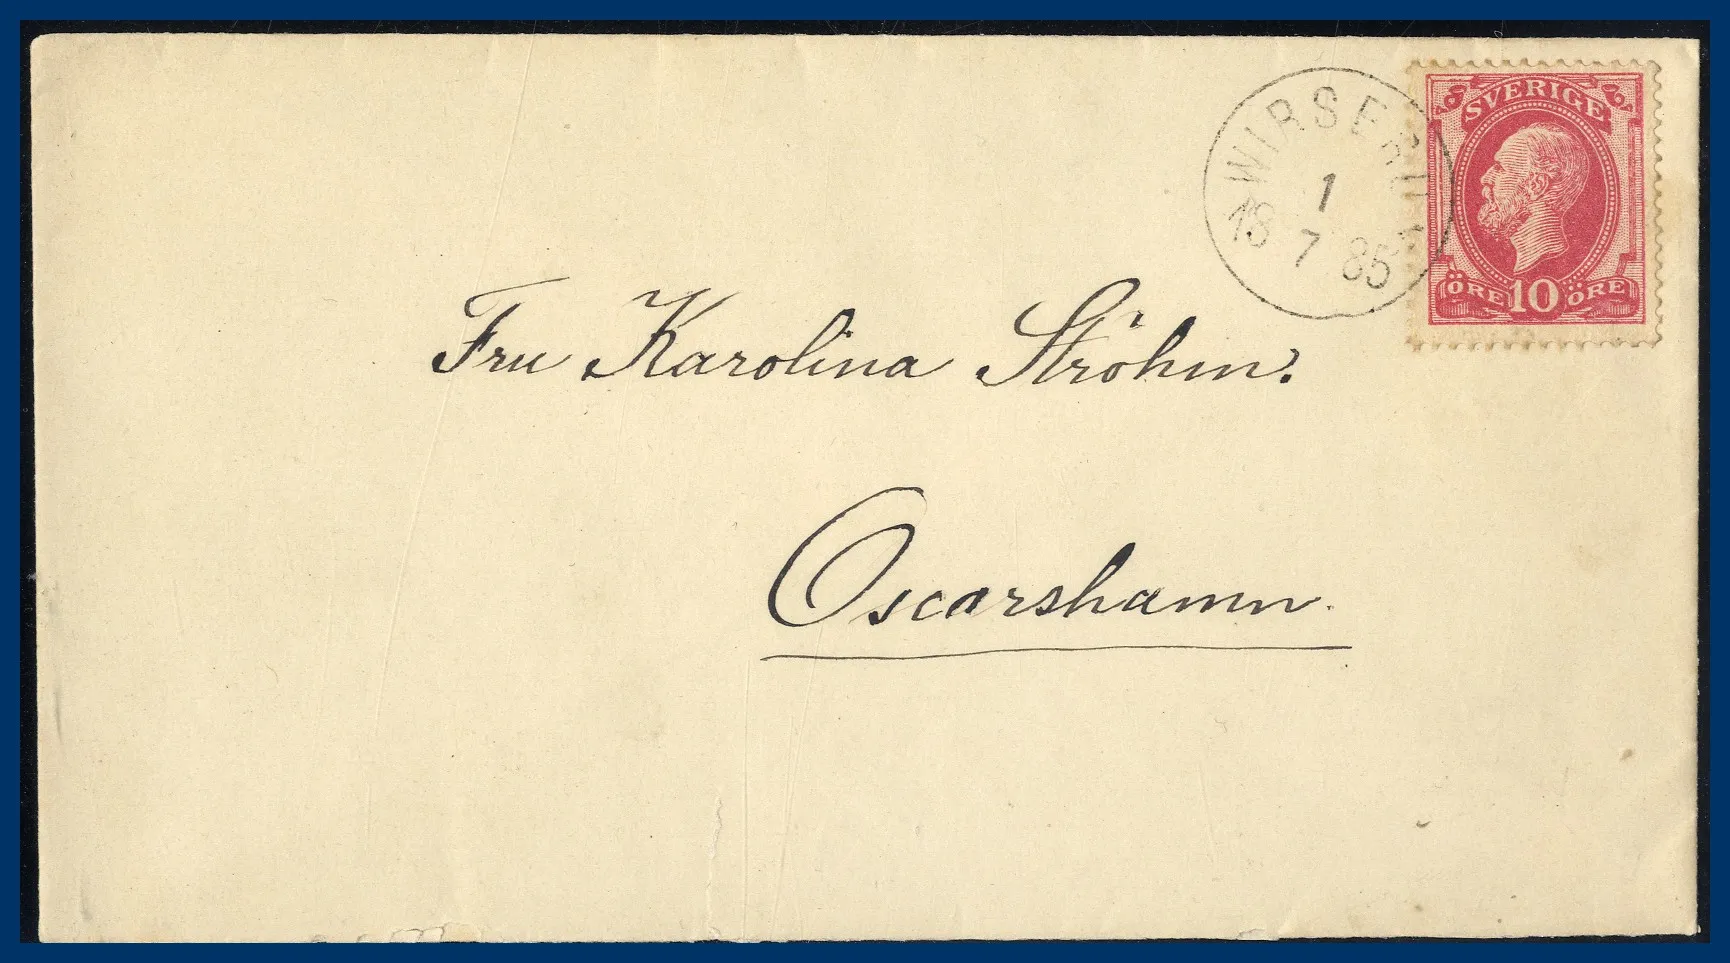 SVERIGE
WIRSERUM
1
18 7 85
ÖRE 10 ÖRE
Fru Karolina Ströhm.
Oscarshamn.